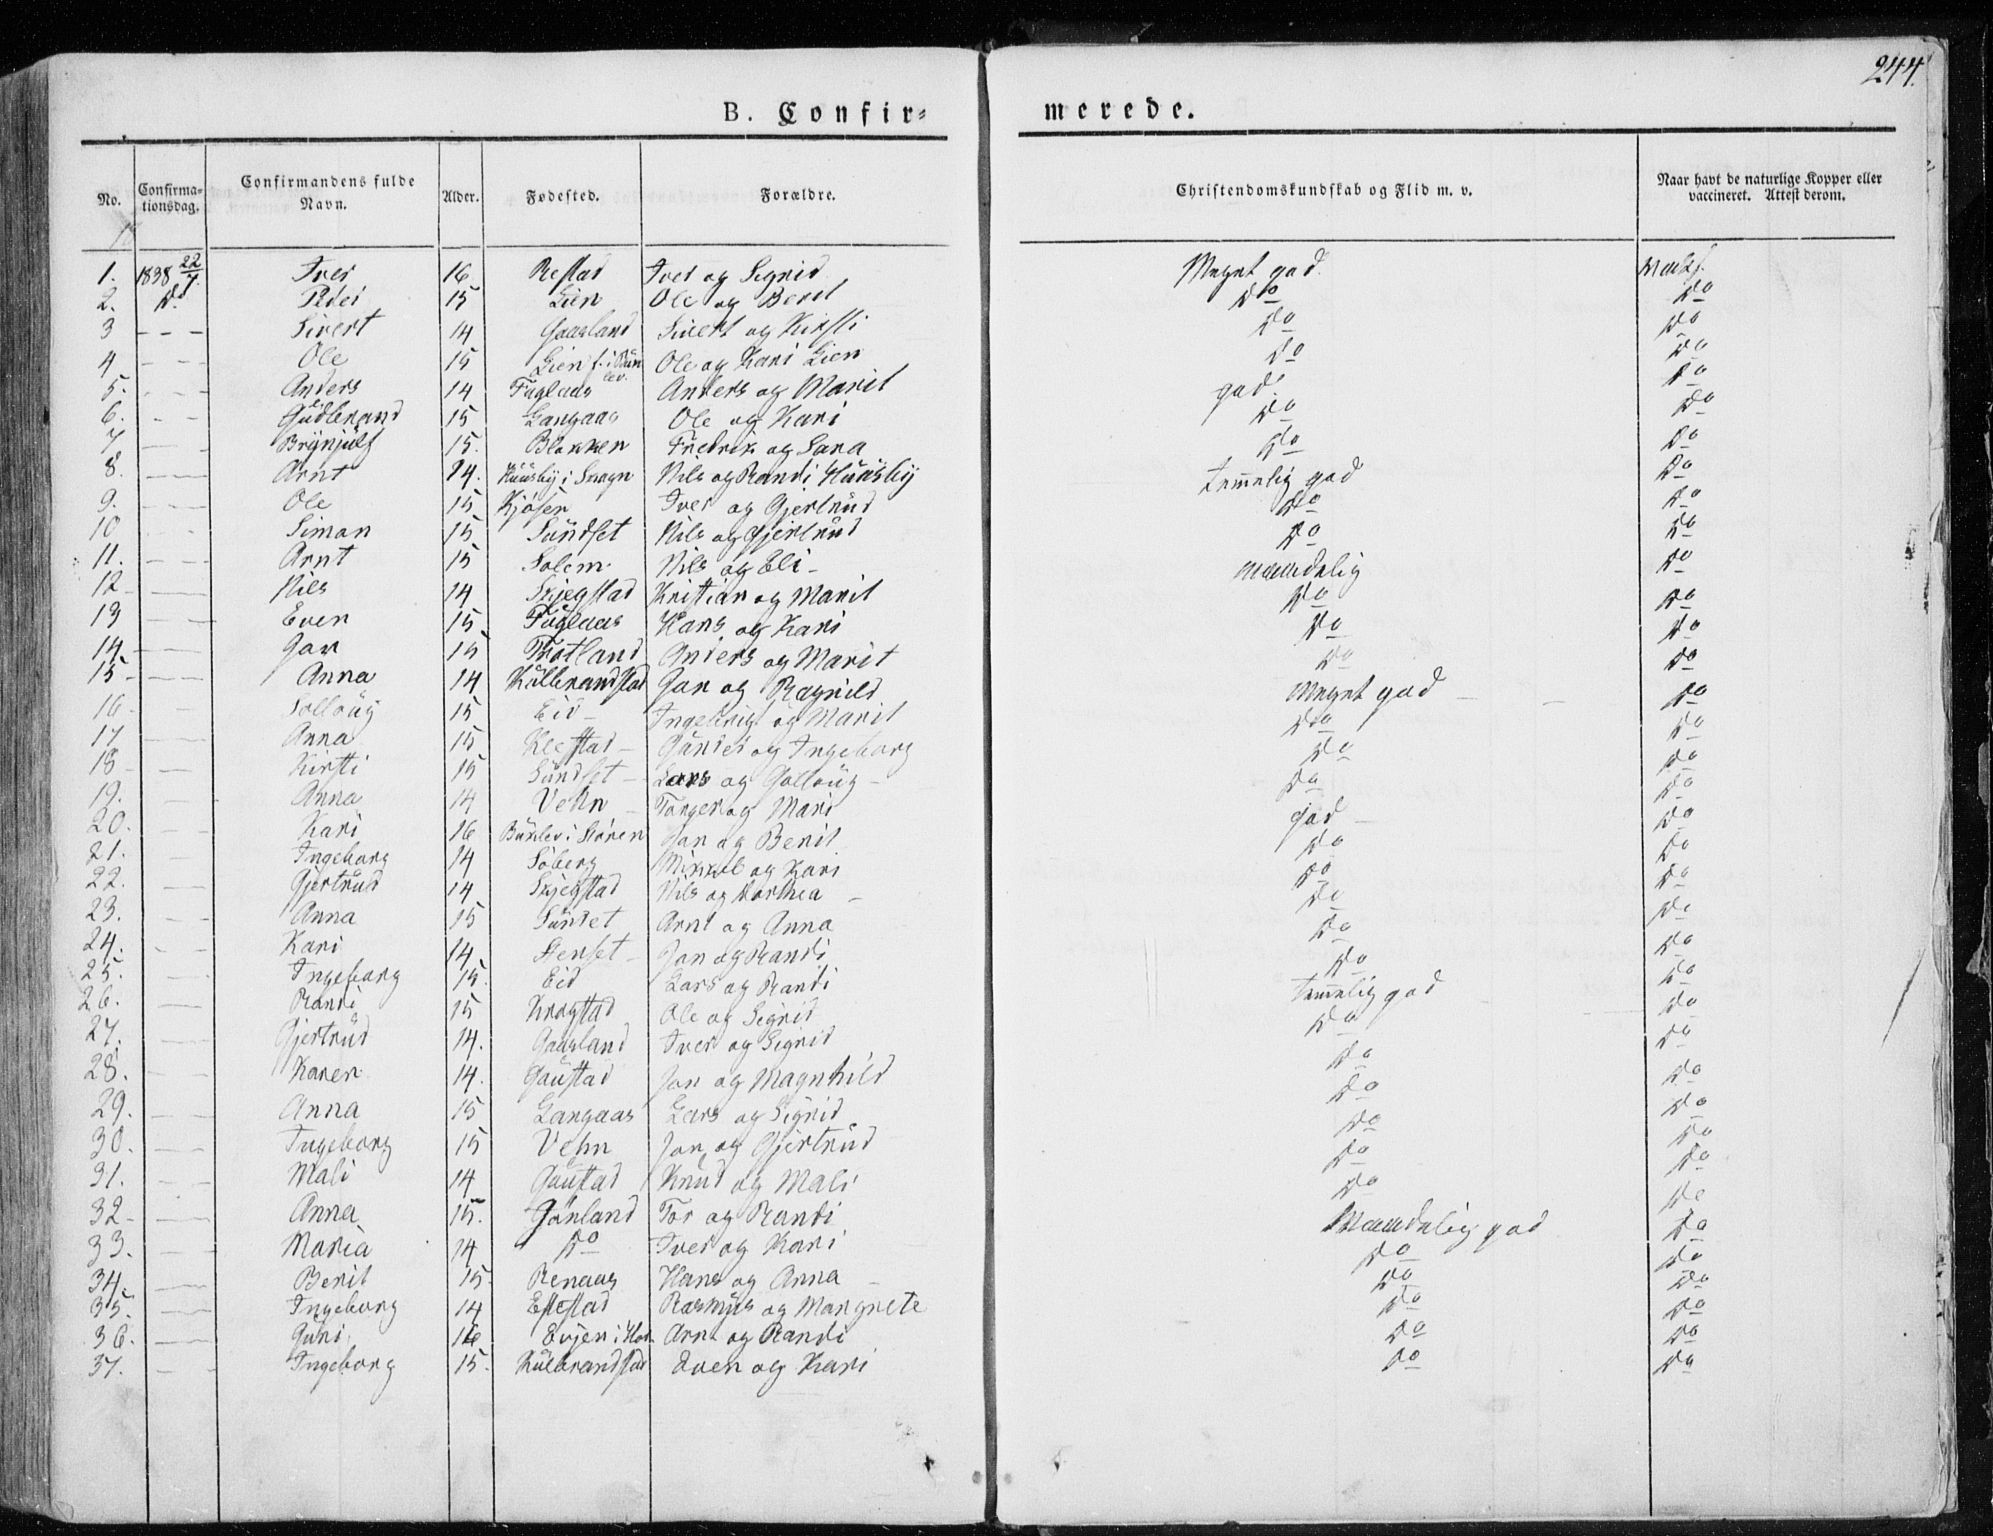 244.
B. Confir= merede.
No. Confirma-tionsdag. Confirmandens fulde Navn. Alder. Fødested. Forældre. Christendomskundskab og Flid m. v. Naar havt de naturlige Kopper eller vaccineret. Attest derom.
1. 1838 22/7. Iver 16 Restad Iver og Sigrid Meget god.
2. Do Peder 15 Lien Ole og Berit Do Do
3 - - - Sivert 14 Gaasland Sivert og Kirsti Do Do
4 - - - Ole 15 Lien Ole og Kari Lien Do Do
5. - - - Anders 14 Fuglaas Anders og Marit god Do
6. - - Gudbrand 15 Langaas Ole og Kari Do Do
7 - - Brynjulf 15. Blokken Fredrik og Sara Do Do
8. - - Arnt 14. Huusby i Nils og Randi Huusby temmelig god Do
9. - - Ole 15 Kjøsen Iver og Gjertrud Do Do
10 - - Simon 15 Sundset Nils og Gjertrud Do Do
11. - - Arnt 15 Solem Nils og Eli - maadelig Do
12 - - Nils 14 Skjegstad Kristian og Marit Do Do
13 - - Even 15 Fuglaas Hans og Kari Do Do
14 - - Jon 15 Anders og Marit Do Do
15 - - Anna 14 Kulbrandstad Jon og Ragnild Meget god Do
16 - - Solloug 15 Eid - Ingebrigt og Marit Do Do
17 - - Anna 15 Klefstad - Gunder og Ingeborg Do Do
18 - - Kirsti 15 Sundset - Lars og Golloug - Do Do
19. - - Anna 14 Vehn - Torger og Mari god - Do
20. - Kari 16 Bunlev i Støren Jon og Berit Do Do
21. - Ingeborg 14 Søberg Mikkel og Kari Do Do
22. - - Gjertrud 14 Skjegstad Nils og Dorthea Do Do
23. - - Anna 15 Sundet Arnt og Anna Do Do
24. - - Kari 14 Stenset - Jon og Randi Do Do
25. - - Ingeborg 15. Eid Lars og Randi temmelig god Do
26. - - Randi 15 Krogstad Ole og Sigrid Do Do
27. - - Gjertrud 14. Gaasland Iver og Sigrid Do Do
28. - - Karen 14. Gaustad Jon og Magnhild Do Do
29. - - Anna 15 Langaas Lars og Sigrid Do Do
30. - - Ingeborg 15 Vehn Jon og Gjertrud Do Do
31. - - Mali 14 Gaustad Knud og Mali Do Do
32 - - Anna 15. Gønland Tor og Randi Maadelig god Do
33. - - Maria 14 Do Iver og Kari Do Do
34 - - Berit 15. Renaas Hans og Anna Do Do
35. - - Ingeborg 14 Rasmus og Margrete Do Do
36. - - Guri 16 Evjen i Arnt og Randi Do Do
37. - - Ingeborg 15. Kulbrandstad Even og Kari Do Do